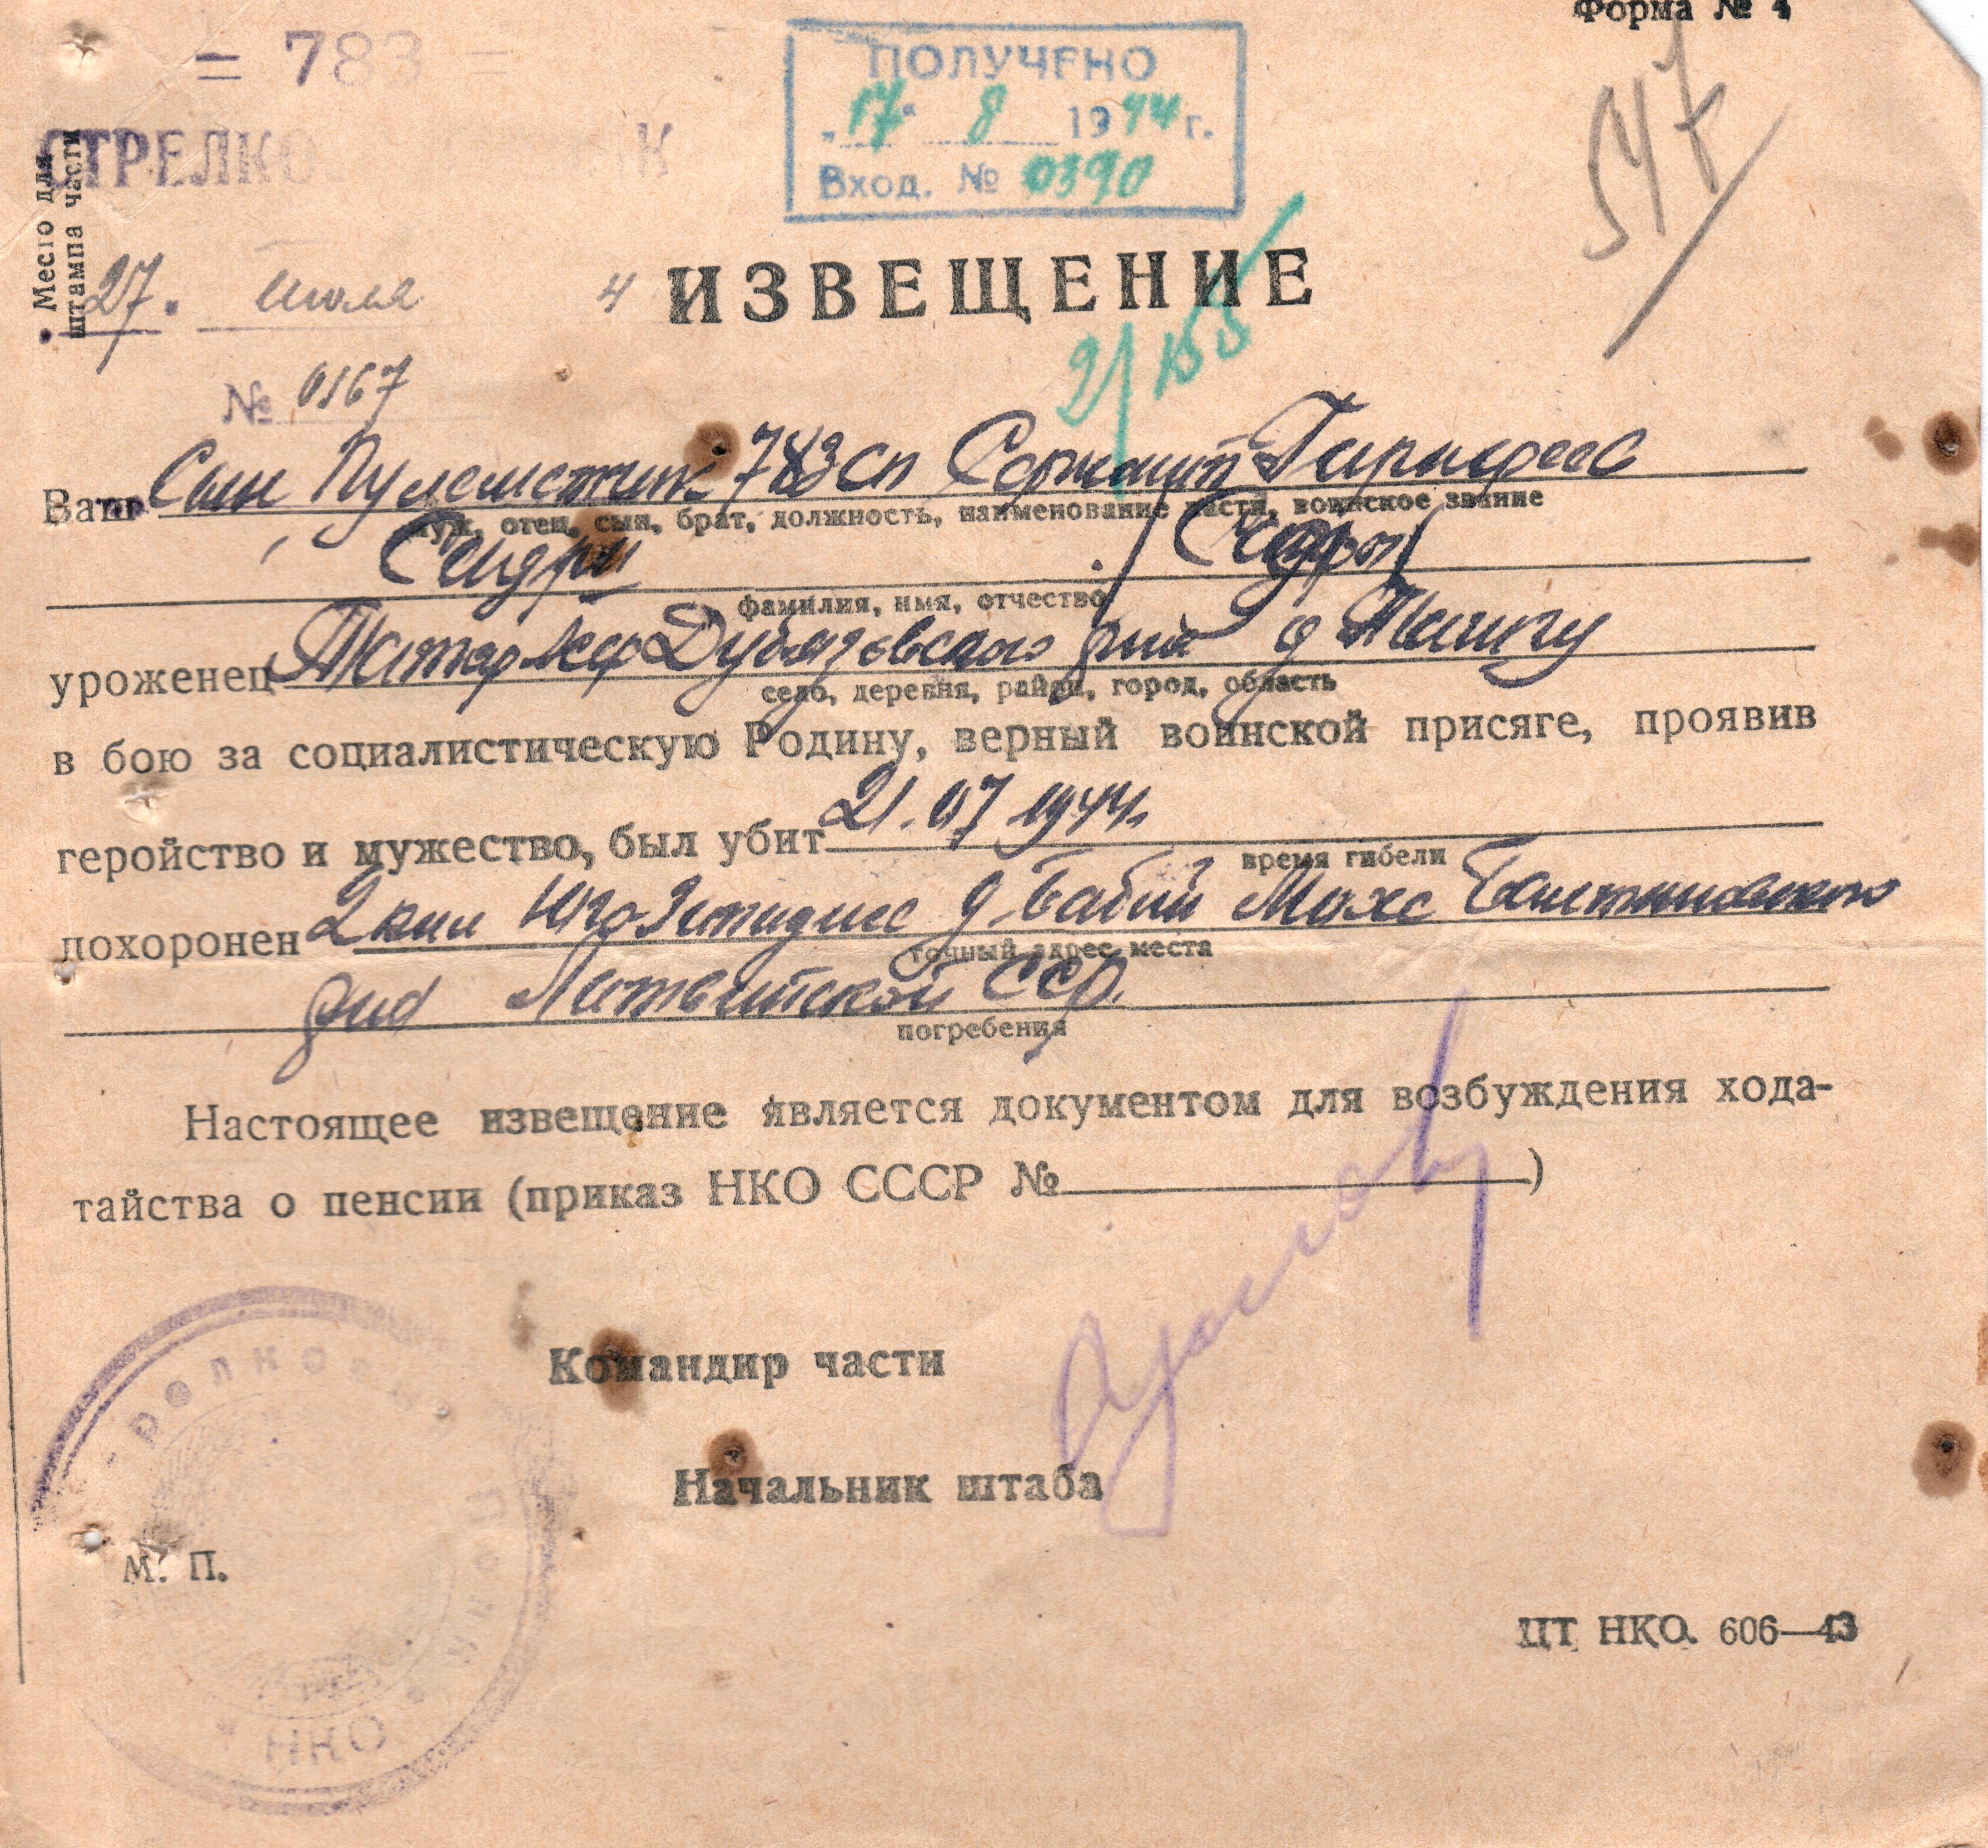 Форма № 4
= 783 =
ПОЛУЧЕНО
„17“ 8 1944 г.
Вход. № 0390
547
СТРЕЛКО К
Место для
штампа части
27. июля 4
ИЗВЕЩЕНИЕ
2/155
№ 0167
Ваш Сын Пулеметчик 783 сп Сержант
муж, отец, сын, брат, должность, наименование части, воинское звание
фамилия, имя, отчество
уроженец Татар Дубязовского р-на д
село, деревня, район, город, область
в бою за социалистическую Родину, верный воинской присяге, проявив
геройство и мужество, был убит 21.07 1944г.
время гибели
похоронен 2 км Юго Западнее д. Бабий Мохе
точный адрес места
р-на Латвийской ССР.
погребения
Настоящее извещение является документом для возбуждения хода-
тайства о пенсии (приказ НКО СССР № )
Командир части
Начальник штаба
М. П.
НКО
ЦТ НКО. 606—43